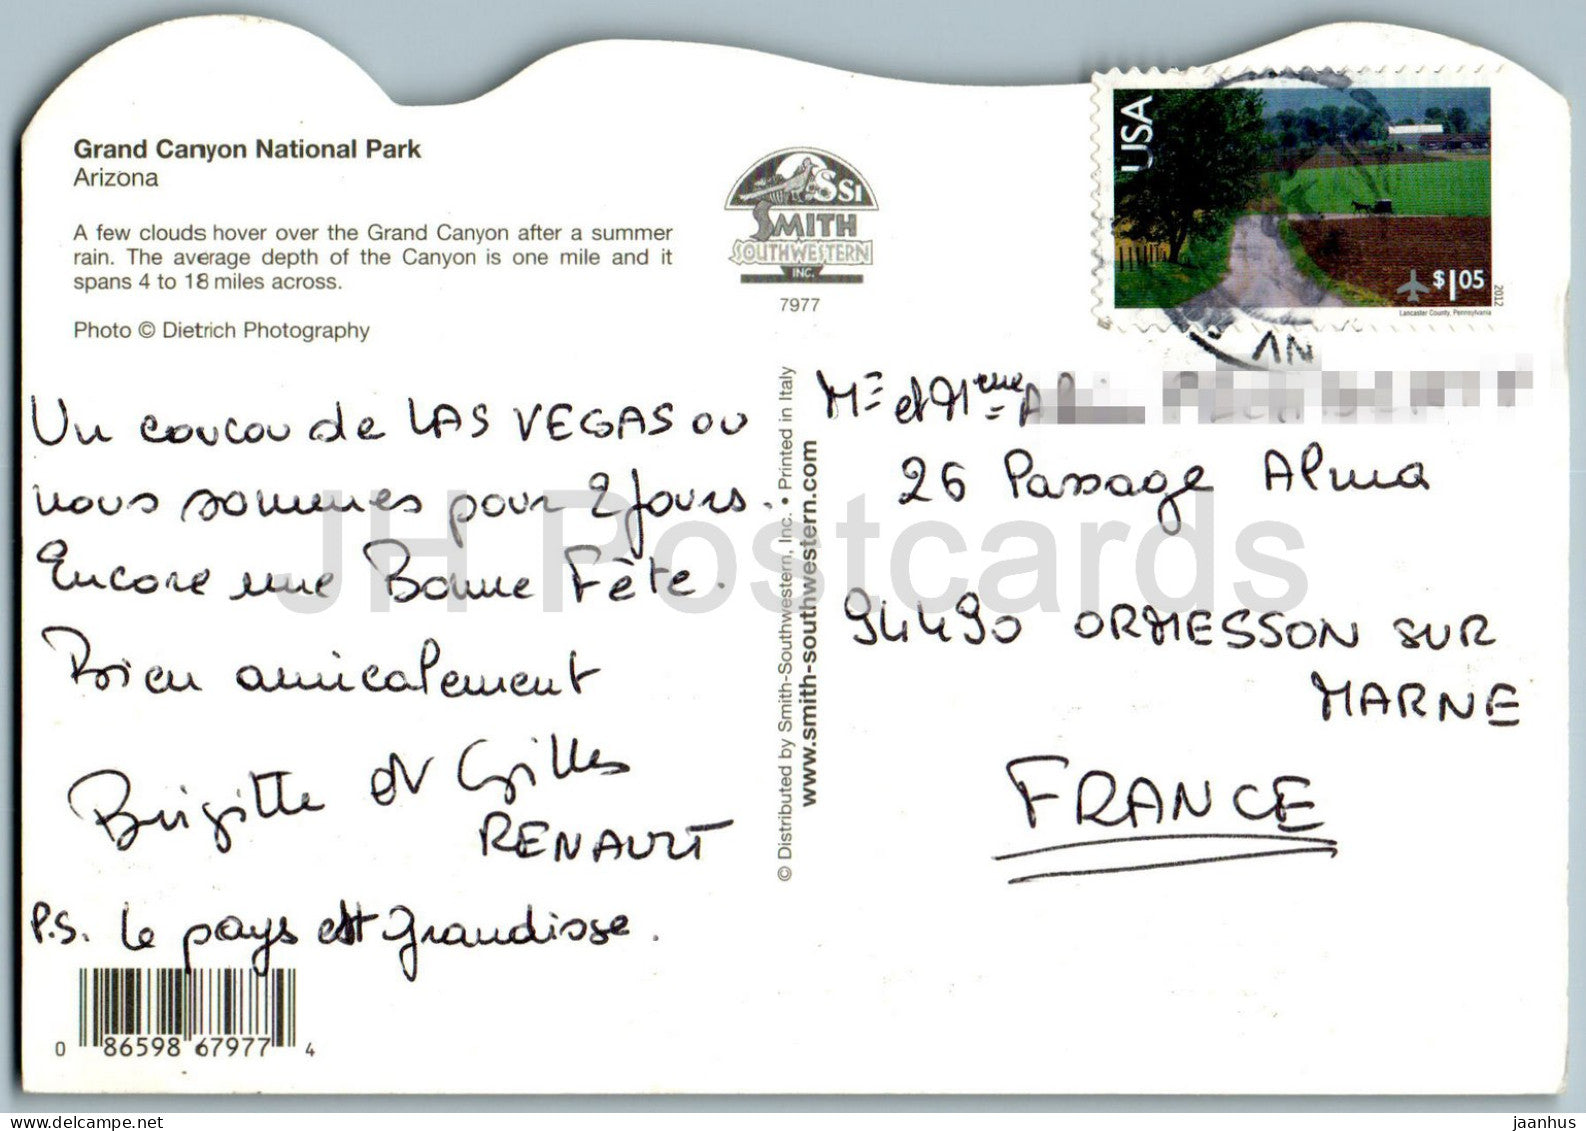 Grand Canyon National Park
Arizona
A few clouds hover over the Grand Canyon after a summer
rain. The average depth of the Canyon is one mile and it
spans 4 to 18 miles across.
Photo © Dietrich Photography
SSI
SMITH
SOUTHWESTERN
INC.
7977
USA
$1.05
2012
Lancaster County, Pennsylvania
NV
Un coucou de LAS VEGAS ou
nous sommes pour 2 jours.
Encore une Bonne Fête.
Bien amicalement
Brigitte et Gilles
RENAULT
P.S. le pays est grandisse.
0 86598 67977 4
© Distributed by Smith-Southwestern, Inc. • Printed in Italy
www.smith-southwestern.com
Mr et Mme
26 Passage Alma
94490 ORMESSON SUR
MARNE
FRANCE
JH Postcards
www.delcampe.net
jaanhus